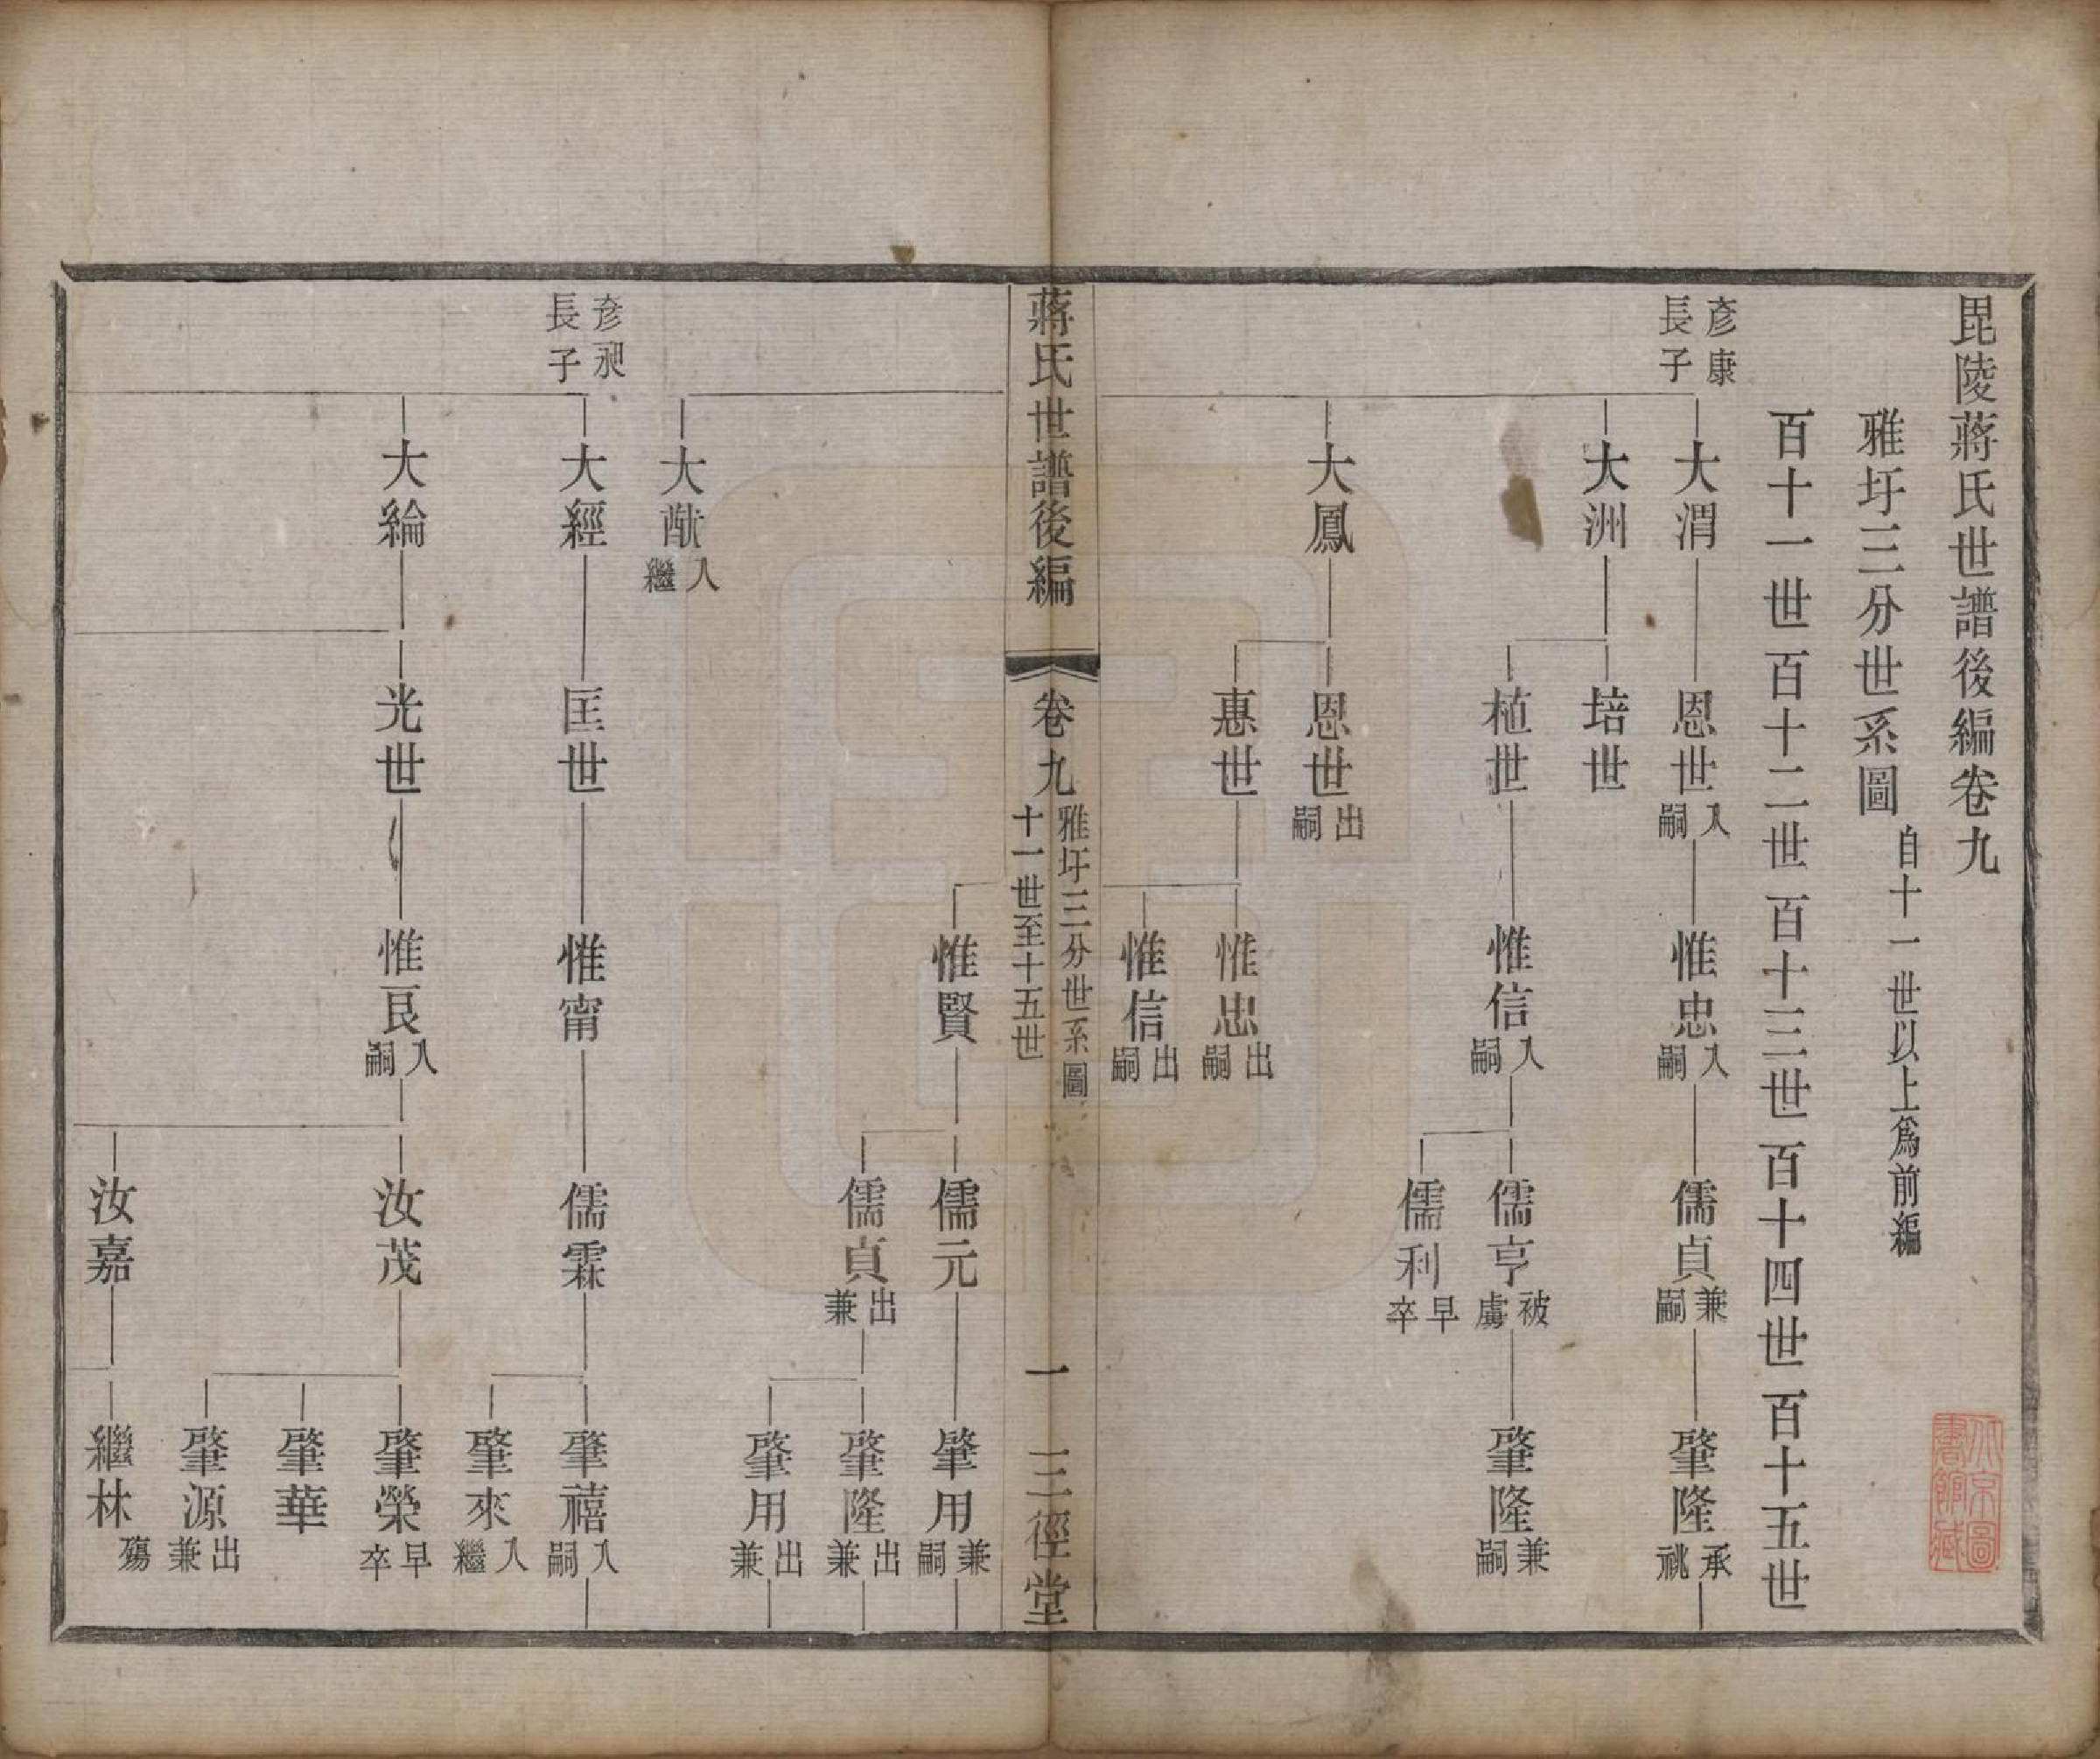 毘陵蔣氏世譜後編卷九
雅圩三分世系圖 自十一世以上爲前編
百十一世 百十二世 百十三世 百十四世 百十五世
彥康長子
大渭 恩世入嗣 惟忠入嗣 儒貞兼嗣 肇隆承祧
大洲 培世
植世 惟信入嗣 儒亨被虜 肇隆兼嗣
儒利早卒
大鳳 恩世出嗣
惠世 惟忠出嗣
惟信出嗣
蔣氏世譜後編 卷九 雅圩三分世系圖 十一世至十五世 一 三徑堂
惟賢 儒元 肇用兼嗣
儒貞出兼 肇隆出兼
肇用出兼
大猷入繼
彥昶長子
大經 匡世 惟甯 儒霖 肇禧入嗣
肇來入繼
大綸 光世 惟良入嗣 汝茂 肇榮早卒
肇華
肇源出兼
汝嘉 繼林殤